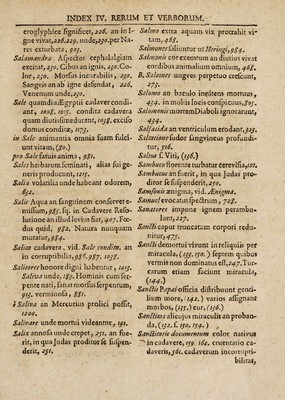 INDEX IV. RERUM ET VERBORUM.
eroglyphice ſignificet, 226. an in I-
gne vivat, 226.229. unde, 230. per Na-
res exturbata, 903.
Salamandra Aſpectus cephalalgiam
excitat, 230. Cibus an ignis, 230. Co-
lor, 230. Morſus incurabilis, 230.
Sangvis an ab igne defendat, 226.
Venenum unde, 230.
Sale quamdiu Ægyptii cadaver condi-
ant, 1028. 1035. condita cadavera
quam diutiſſimè durant, 1038. exciſo
domus conditæ, 1173.
in Sale animantia omnia ſuam fulci-
unt vitam, (80.)
pro Sale ſatuis anima, 981.
Sales herbarum ſemitati, alias ſui ge-
neris producunt, 1215.
Salia volatilia unde habeant odorem,
632.
Salis Aqua an ſanguinem conſervet e-
miſſum, 985. ſq. in Cadavere Reſo-
lutione an illud levius fiat, 407. Fœ-
dus quid, 982. Natura nunquam
mutatur, 984.
Salita cadavera, vid. Sale condita, an
in corruptibilia, 986. 987. 1038.
Salitores honore digni habentur, 1025.
Saliva unde, 185. Hominis cum ſer-
pente nati, ſanat morſus ſerpentum,
915. verminoſa, 881.
è Saliva an Mercurius prolici poſſit,
1200.
Salivare unde mortui videantur, 191.
Salix annoſa unde crepet, 251. an fue-
rit, in qua Judas proditor ſe ſuſpen-
derit, 251.
Salmo extra aquam vix protrahit vi-
tam, 468.
Salmones ſaliuntur ut Heringi, 984.
Salomonis ore exemtum an diutius vivat
cordibus animalium omnium, 468.
R. Salomonis ungves perpetuo creſcunt,
273.
Salomo an baculo innitens mortuus,
434. in multis locis conſpicitur, 805.
Salomonis mortem Diaboli ignorarunt,
434.
Salfacida an ventriculum erodant, 329.
Salutatione ſudor ſangvineus profundi-
tur, 516.
Salvus ſ. Viri, (136.)
Sambuco florente turbatur cereviſia, 101.
Sambucus an fuerit, in qua Judas pro-
ditor ſe ſuſpenderit, 250.
Sampſonis ænigma, vid. Ænigma.
Samuel evocatus ſpectrum, 728.
Sanatores impune ignem perambu-
lant, 227.
Sancti caput truncatum corpori redu-
nitur, 475.
Sancti demortui vivunt in reliquiis per
miracula, (135. 150.) ſeptem quibus
vermis non dominatus eſt, 247. Tur-
carum etiam faciunt miracula,
(144.)
Sancti Papæ officia diſtribuunt genti-
lium more, (142.) varios aſſignant
morbos, (135.) cur, (136.)
Sanctitas alicujus miraculis an proban-
da, (132. ſ. 150. 154.)
Sanctitatis documentum color nativus
in cadavere, 159. 162. cruentatio ca-
daveris, 561. cadaverum incorrupti-
bilitas,